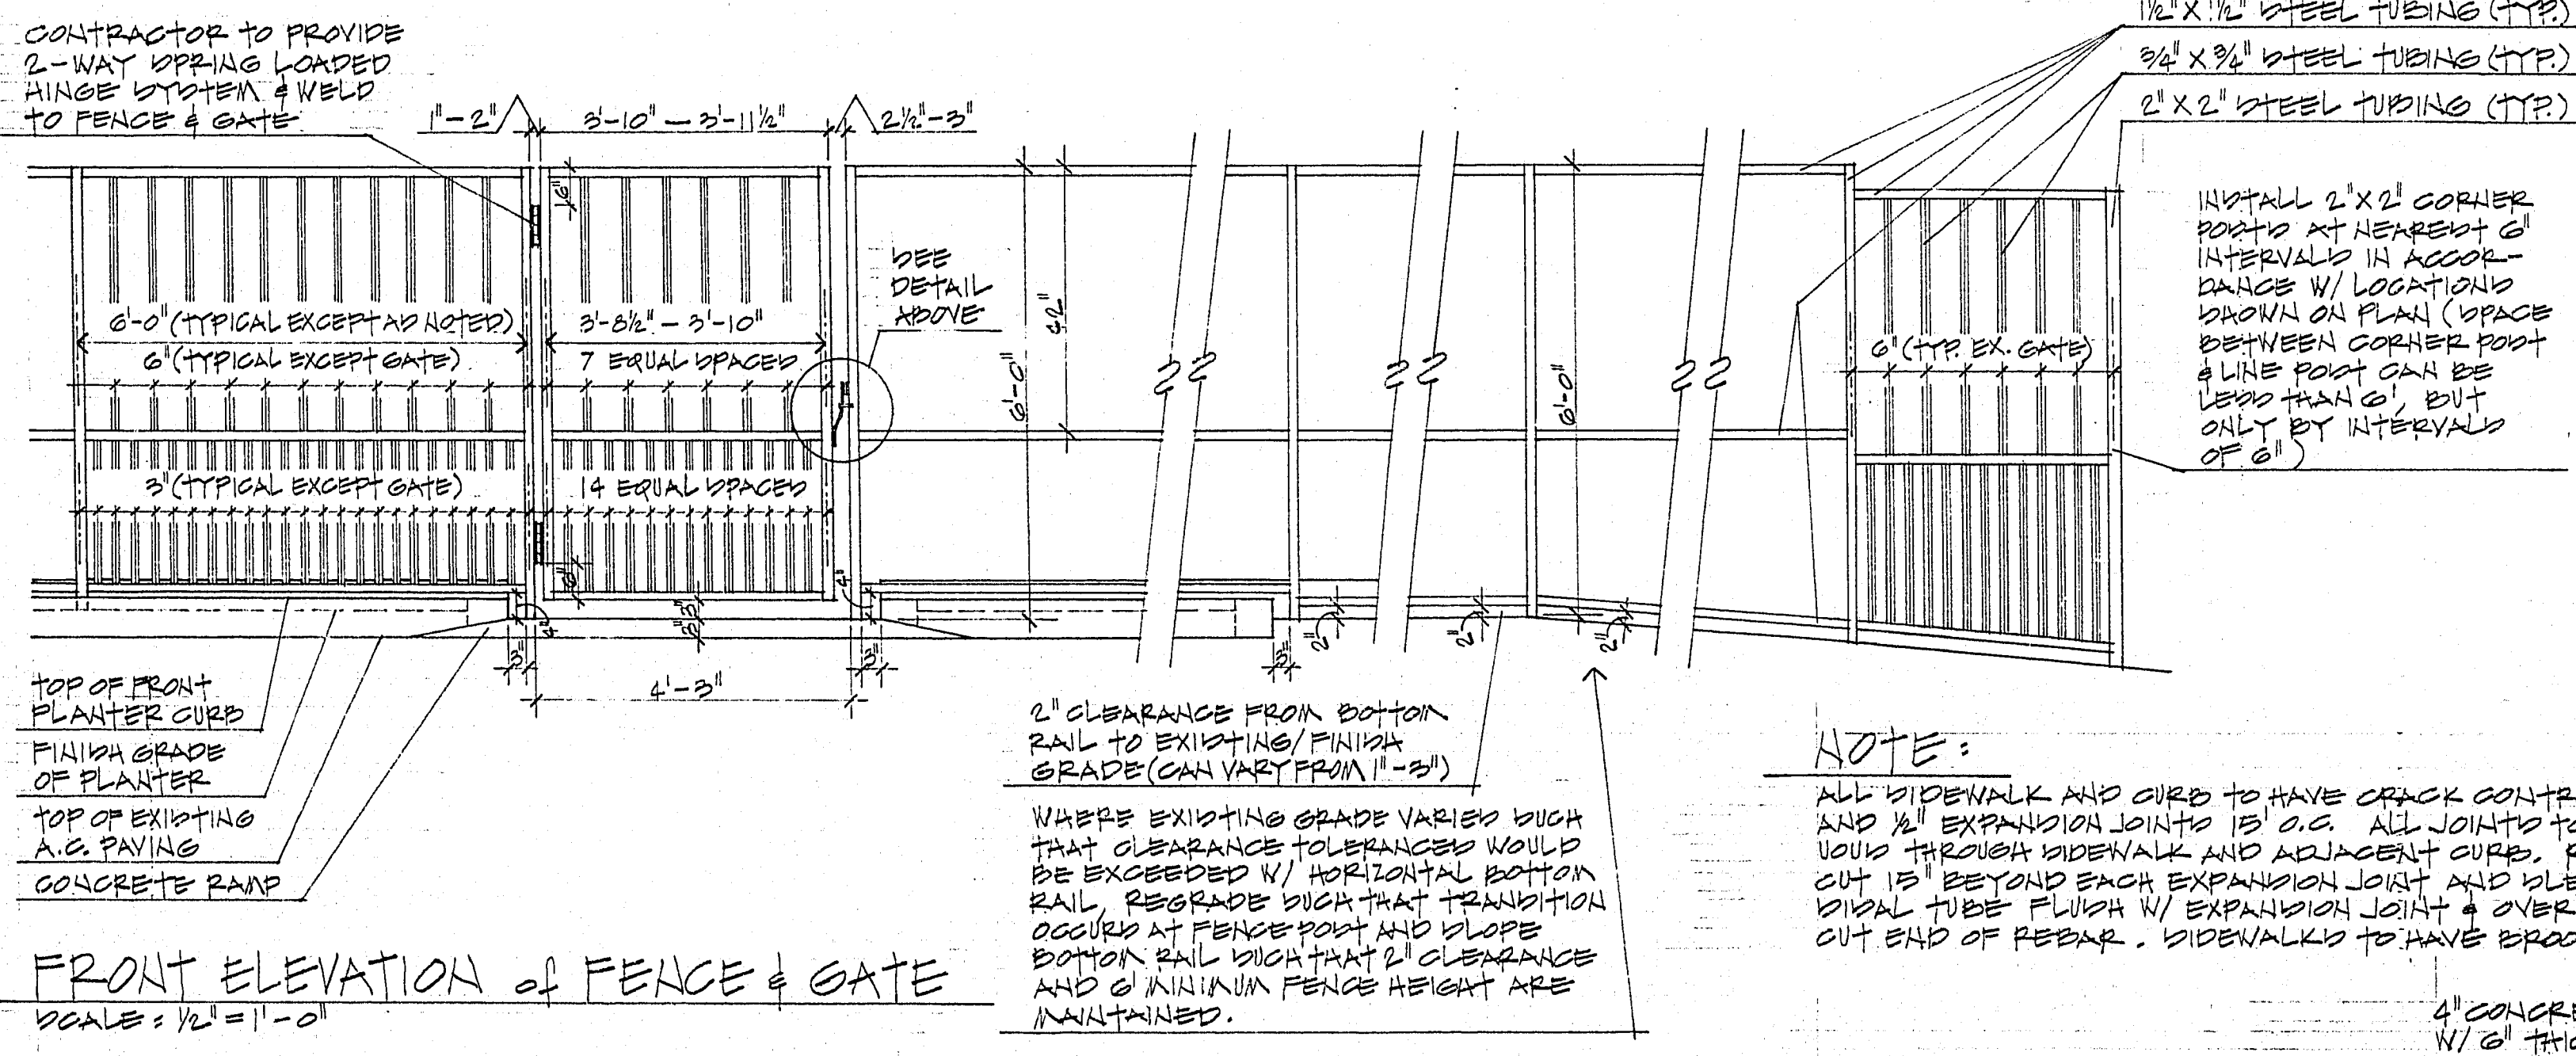 CONTRACTOR TO PROVIDE
2-WAY SPRING LOADED
HINGE SYSTEM & WELD
TO FENCE & GATE
1"-2"
3'-10" — 3'-11½"
2½"-3"
1½" X 1½" STEEL TUBING (TYP.)
¾" X ¾" STEEL TUBING (TYP.)
2" X 2" STEEL TUBING (TYP.)
INSTALL 2" X 2" CORNER
POSTS AT NEAREST 6"
INTERVALS IN ACCOR-
DANCE W/ LOCATIONS
SHOWN ON PLAN (SPACE
BETWEEN CORNER POST
& LINE POST CAN BE
LESS THAN 6', BUT
ONLY BY INTERVALS
OF 6")
SEE
DETAIL
ABOVE
6'-0" (TYPICAL EXCEPT AS NOTED)
6" (TYPICAL EXCEPT GATE)
3'-8½" — 3'-10"
7 EQUAL SPACES
42"
6'-0"
6'-0"
6" (TYP. EX. GATE)
3" (TYPICAL EXCEPT GATE)
14 EQUAL SPACES
6"
4"
4"
3"
3"
3"
3"
3"
2"
2"
2"
4'-3"
TOP OF FRONT
PLANTER CURB
FINISH GRADE
OF PLANTER
TOP OF EXISTING
A.C. PAVING
CONCRETE RAMP
2" CLEARANCE FROM BOTTOM
RAIL TO EXISTING/FINISH
GRADE (CAN VARY FROM 1"-3")
WHERE EXISTING GRADE VARIES SUCH
THAT CLEARANCE TOLERANCES WOULD
BE EXCEEDED W/ HORIZONTAL BOTTOM
RAIL, REGRADE SUCH THAT TRANSITION
OCCURS AT FENCE POST AND SLOPE
BOTTOM RAIL SUCH THAT 2" CLEARANCE
AND 6' MINIMUM FENCE HEIGHT ARE
MAINTAINED.
NOTE:
ALL SIDEWALK AND CURB TO HAVE CRACK CONTR
AND ½" EXPANSION JOINTS 15' O.C. ALL JOINTS TO
UOUS THROUGH SIDEWALK AND ADJACENT CURB.
CUT 15" BEYOND EACH EXPANSION JOINT AND SLE
SISAL TUBE FLUSH W/ EXPANSION JOINT & OVER
CUT END OF REBAR. SIDEWALKS TO HAVE BROO
FRONT ELEVATION of FENCE & GATE
SCALE: ½" = 1'-0"
4" CONCRE
W/ 6" THIC